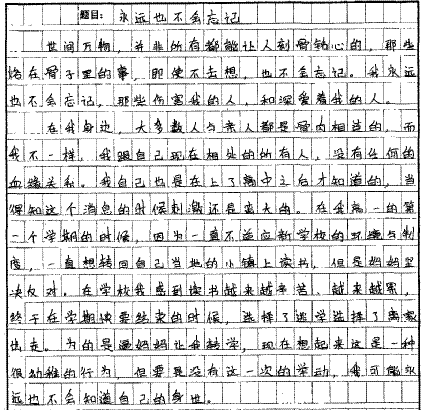 题目：永远也不会忘记
世间万物，并非所有都能让人刻骨铭心的，那些
烙在骨子里的事，即使不去想，也不会忘记。我永远
也不会忘记，那些伤害我的人，和深爱着我的人。
在我身边，大多数人与亲人都是骨肉相连的，而
我不一样，我跟自己现在相处的所有人，没有任何的
血缘关系。我自己也是在上了高中之后才知道的，当
得知这个消息的时候刺激还是蛮大的。在我高一的第
一个学期的时候，因为一直不适应新学校的环境与制
度，一直想转回自己当地的小镇上读书，但是妈妈坚
决反对。在学校我感到读书越来越辛苦、越来越累，
终于在学期快要结束的时候，选择了逃学选择了离家
出走。为的是逼妈妈让我转学，现在想起来这是一种
很幼稚的行为，但要是没有这一次的举动，我可能永
远也不会知道自己的身世。